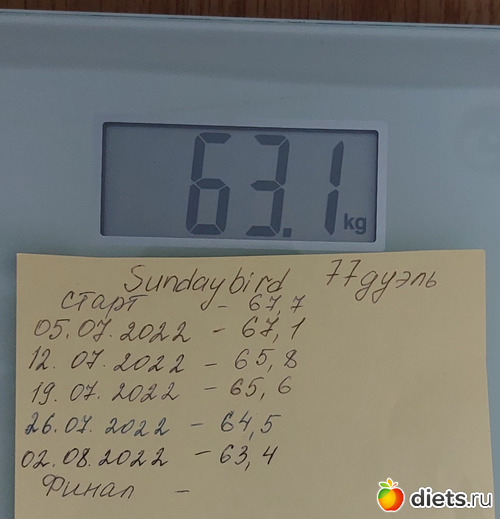 63.1 kg
Sundaybird 77 дуэль
старт - 67,7
05.07.2022 - 67,1
12.07.2022 - 65,8
19.07.2022 - 65,6
26.07.2022 - 64,5
02.08.2022 - 63,4
Финал -
diets.ru